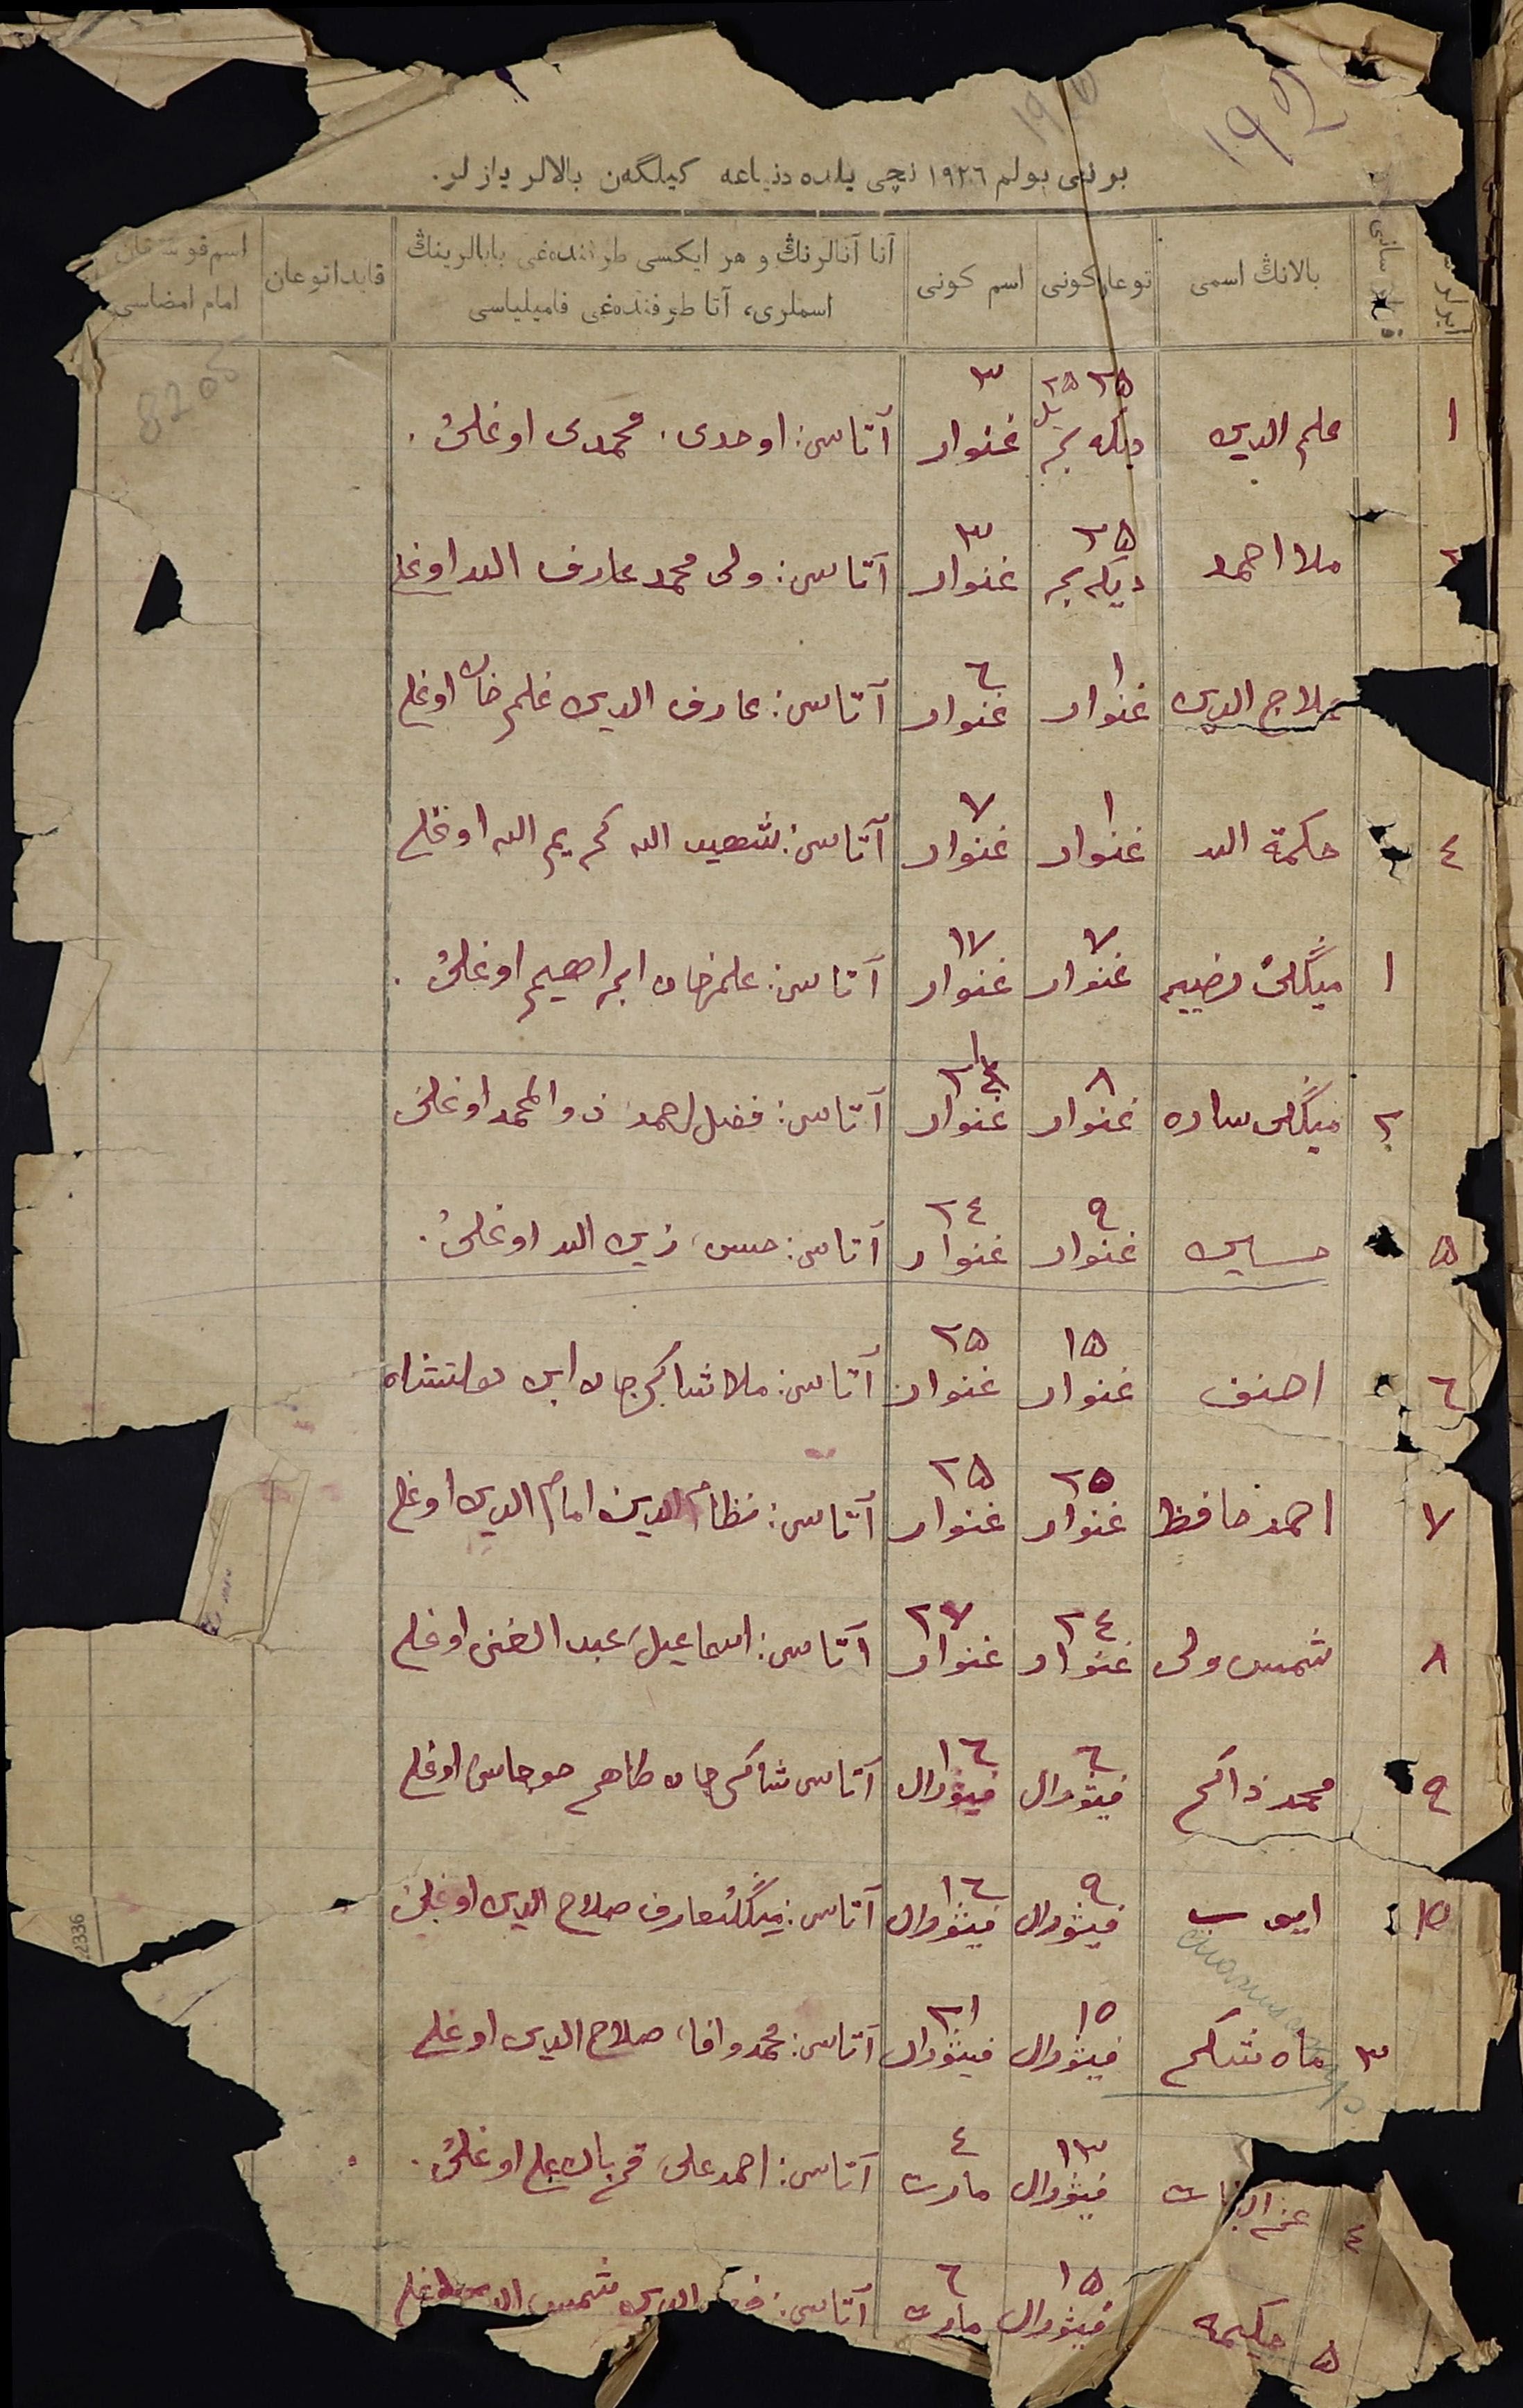 برنچی بولم ١٩٢٦ نچی یلده دنیاعه کیلگەن بالالر یازلر.
بالانڭ اسمی
توعان کونی
اسم کونی
آتا آنالرنڭ و هر ایکسی طرفندەغی بابالرینڭ
اسملری، آتا طرفندەغی فامیلیاسی
قایدا توعان
اسم قوشقان
امام امضاسی
8205
١ علم الدین ٢٥ دیکەبر ٣ غنوار آتاسی: اوحدی. محمدی اوغلی.
ملا احمد ٢٥ دیکەبر ٣ غنوار آتاسی: ولی محمد عارف الله اوغلی
علاج الدین ١ غنوار ٦ غنوار آتاسی: عارف الدین غلم خان اوغلی
٤ حکمة الله ١ غنوار ٧ غنوار آتاسی: شهید الله کریم الله اوغلی
١ میڭلی رضیه ٧ غنوار ١٧ غنوار آتاسی: علمخان ابراهیم اوغلی.
٢ میڭلی ساره ٨ غنوار غنوار آتاسی: فضل احمد اوغلی
٥ حسین ٩ غنوار ٢٤ غنوار آتاسی: حسن، زین الله اوغلی.
٦ احنف ١٥ غنوار ٢٥ غنوار آتاسی: ملا شاکرجان ابن دولتشاه
٧ احمد حافظ ٢٥ غنوار ٢٥ غنوار آتاسی: نظام الدین امام الدین اوغلی
٨ شمس ولی ٢٤ غنوار ٢٧ غنوار آتاسی: اسماعیل، عبد الغنی اوغلی
٩ محمد ذاکر ٦ فیۋرال ١٦ فیۋرال آتاسی شاکرجان طاهر اوغلی
١٥ ایوب ٩ فیۋرال ١٦ فیۋرال آتاسی: صلاح الدین اوغلی
٣ ماه شکر ١٥ فیۋرال ٢١ فیۋرال آتاسی: محمد وافا، صلاح الدین اوغلی
٤ ١٣ فیۋرال ٤ مارت آتاسی: احمد علی، قربان علی اوغلی.
٥ حکیمه ١٥ فیۋرال ٦ مارت آتاسی: الدین شمس اوغلی
22336